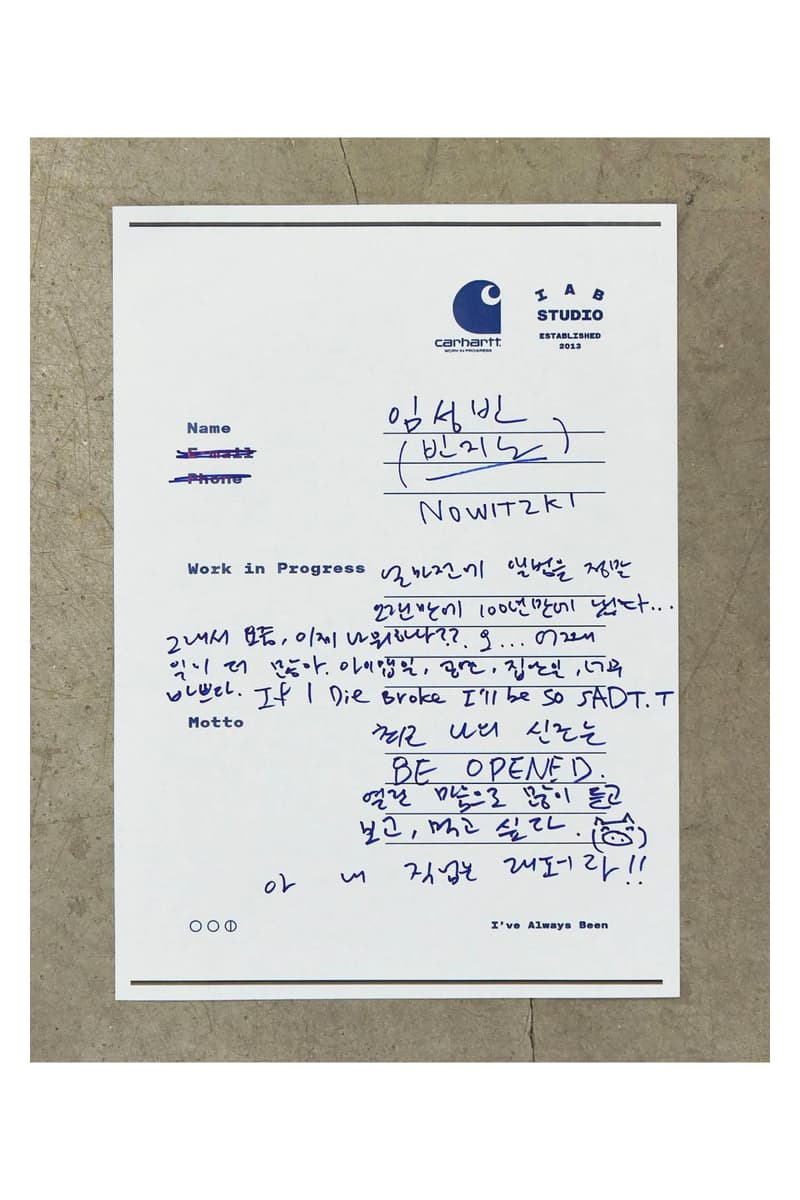 carhartt.
WORK IN PROGRESS
I A B
STUDIO
ESTABLISHED
2013
Name 임성빈
E-mail (빈지노)
Phone
NOWITZKI
Work in Progress 얼마전에 앨범을 정말
오랜만에 100년만에 냈다...
그래서 이제 오... 어째
일이 더 많아. 아이앱일, 공연, 집안일, 너무
바쁘다. If I Die Broke I'll be so SAD T.T
Motto 최근 나의 신조는
BE OPENED.
열린 마음으로 많이 듣고
보고, 먹고 싶다.
아 내 직업은 래퍼라!!
I've Always Been